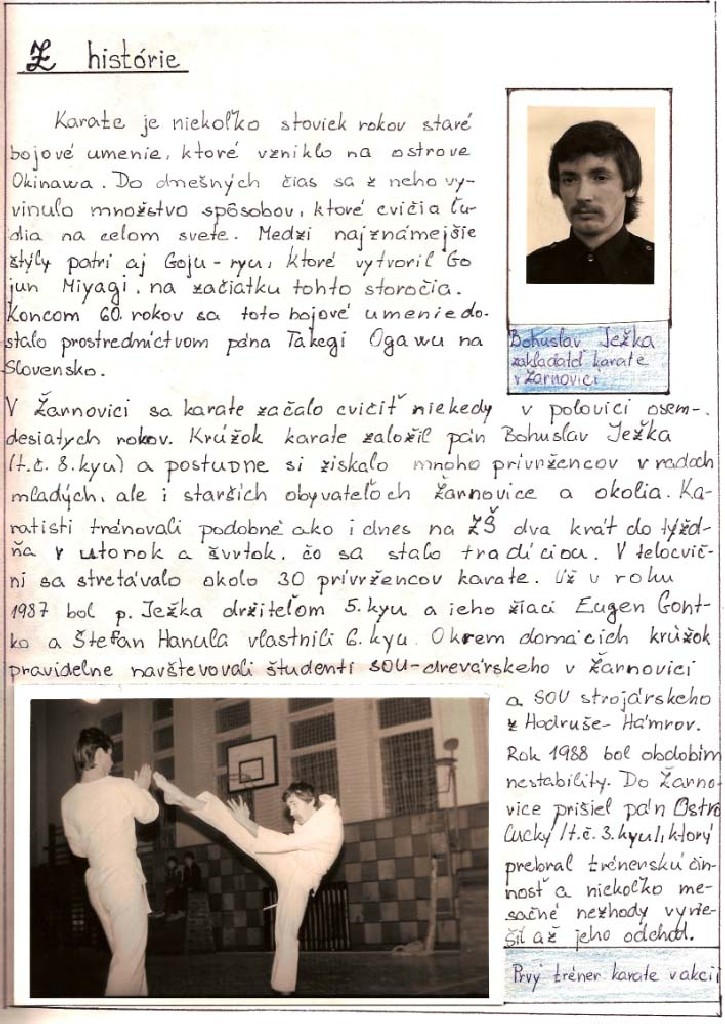 Z histórie
Karate je niekoľko stoviek rokov staré
bojové umenie, ktoré vzniklo na ostrove
Okinawa. Do dnešných čias sa z neho vy-
vinulo množstvo spôsobov, ktoré cvičia ľu-
dia na celom svete. Medzi najznámejšie
štýly patrí aj Goju-ryu, ktoré vytvoril Go
jun Miyagi, na začiatku tohto storočia.
Koncom 60. rokov sa toto bojové umenie do-
stalo prostredníctvom pána Takegi Ogawu na
Slovensko.
Bohuslav Ježka
zakladateľ karate
v Žarnovici
V Žarnovici sa karate začalo cvičiť niekedy v polovici osem-
desiatych rokov. Krúžok karate založil pán Bohuslav Ježka
(t.č. 8.kyu) a postupne si získalo mnoho prívržencov v radoch
mladých, ale i starších obyvateľoch Žarnovice a okolia. Ka-
ratisti trénovali podobne ako i dnes na ZŠ dva krát do týžd-
ňa v utorok a švrtok, čo sa stalo tradíciou. V telocvič-
ni sa stretávalo okolo 30 prívržencov karate. Už v roku
1987 bol p. Ježka držiteľom 5.kyu a jeho žiaci Eugen Gont-
ko a Štefan Hanuľa vlastnili 6.kyu. Okrem domácich krúžok
pravidelne navštevovali študenti SOU-drevárskeho v Žarnovici
a SOU strojárskeho
z Hodruše-Hámrov.
Rok 1988 bol obdobím
nestability. Do Žarno-
vice prišiel pán Ostro
Cucký (t.č. 3.kyu), ktorý
prebral trénerskú čin-
nosť a niekoľko me-
sačné nezhody vyrie-
šil až jeho odchod.
Prvý tréner karate v akcii